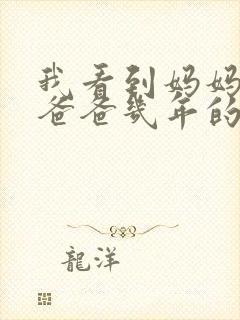 我看到妈妈
爸爸几年的
龍洋